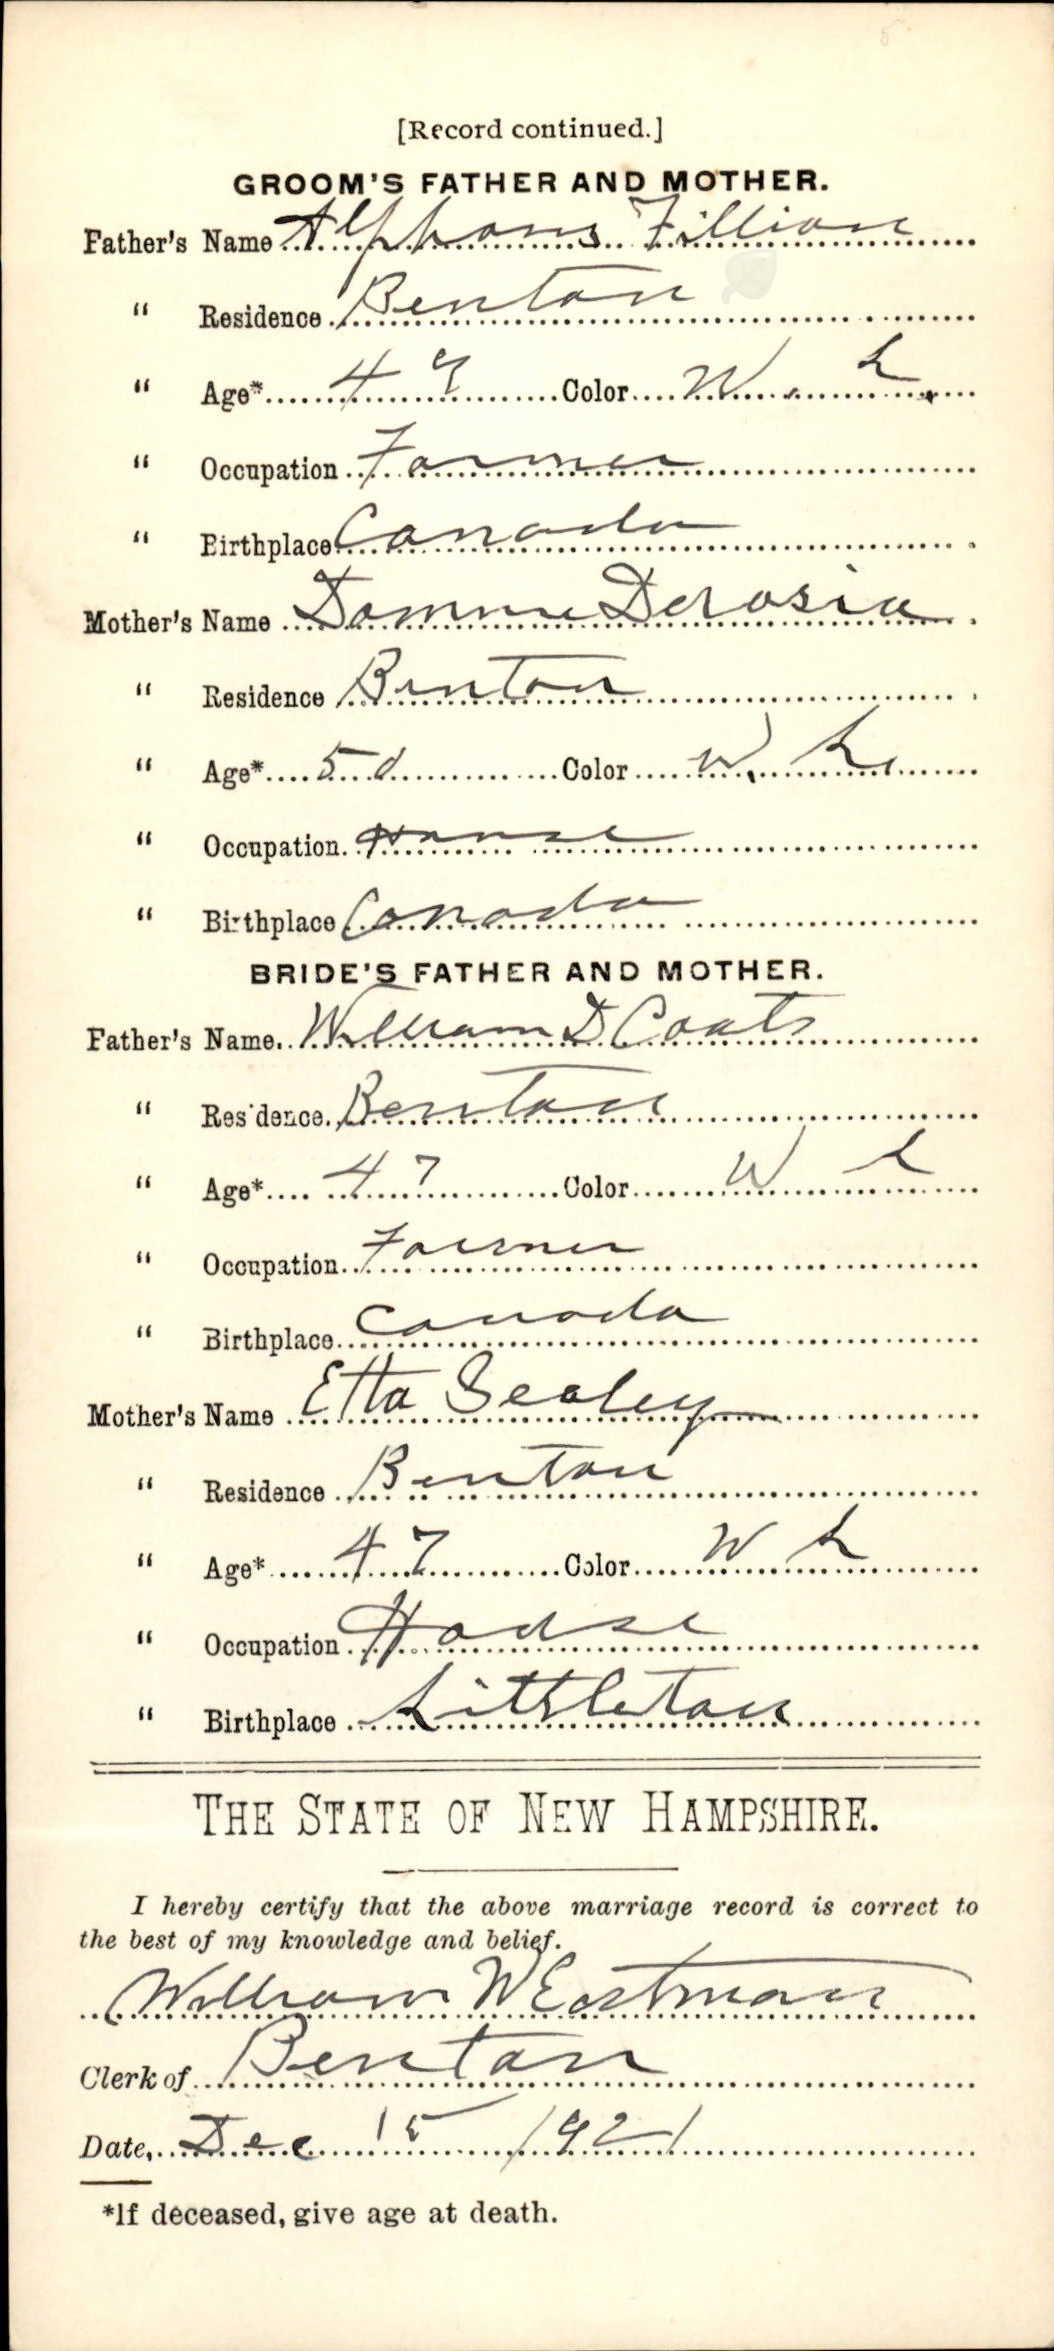 [Record continued.]
GROOM'S FATHER AND MOTHER.
Father's Name Alphons Fillion
" Residence Benton
" Age* 49 Color W. h.
" Occupation Farmer
" Birthplace Canada
Mother's Name Derosia
" Residence Benton
" Age* 50 Color W. h
" Occupation House
" Birthplace Canada
BRIDE'S FATHER AND MOTHER.
Father's Name William D Coats
" Residence Benton
" Age* 47 Color W h
" Occupation Farmer
" Birthplace Canada
Mother's Name Etta Sealey
" Residence Benton
" Age* 47 Color W h
" Occupation House
" Birthplace Littleton
THE STATE OF NEW HAMPSHIRE.
I hereby certify that the above marriage record is correct to
the best of my knowledge and belief.
William W Eastman
Clerk of Benton
Date, Dec 15 1921
*If deceased, give age at death.